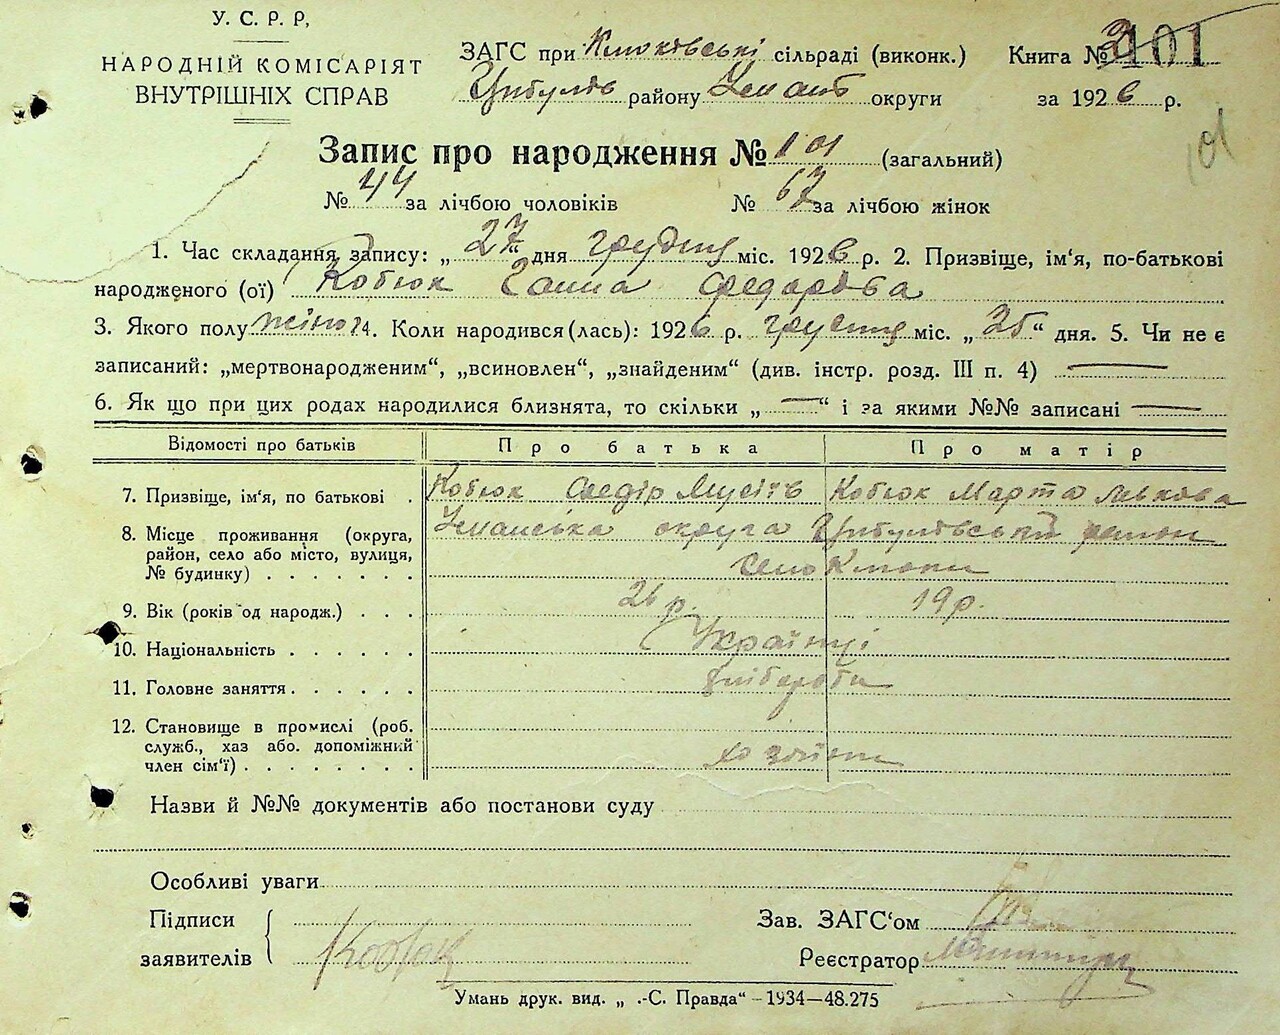 У. С. Р. Р,
НАРОДНІЙ КОМІСАРІЯТ
ВНУТРІШНІХ СПРАВ
ЗАГС при сільраді (виконк.) Книга № 101
Цибулів району Уманс округи за 1926 р.
101
Запис про народження № 101 (загальний)
№ 44 за лічбою чоловіків № 67 за лічбою жінок
1. Час складання запису: „27“ дня грудня міс. 1926 р. 2. Призвіще, ім'я, по-батькові
народженого (ої) Кобюк Ганна Федорова
3. Якого полу жіноч 4. Коли народився (лась): 1926 р. грудня міс. „25“ дня. 5. Чи не є
записаний: „мертвонародженим“, „всиновлен“, „знайденим“ (див. інстр. розд. III п. 4) —
6. Як що при цих родах народилися близнята, то скільки „—“ і за якими №№ записані —
Відомості про батьків Про батька Про матір
7. Призвіще, ім'я, по батькові . Кобюк Федір Мусіїв Кобюк Марта
8. Місце проживання (округа, Уманська округа Цибулівський район
район, село або місто, вулиця,
№ будинку) . . . . . . . село
9. Вік (років од народж.) . . . 26 р. 19 р.
10. Національність . . . . . . Українці
11. Головне заняття . . . . . . хлібороби
12. Становище в промислі (роб.
служб., хаз або. допоміжний
член сім'ї) . . . . . . . . хозяїни
Назви й №№ документів або постанови суду
Особливі уваги
Підписи Зав. ЗАГС'ом
заявителів Кобюк Реєстратор
Умань друк. вид. „ .-С. Правда“ - 1934—48.275